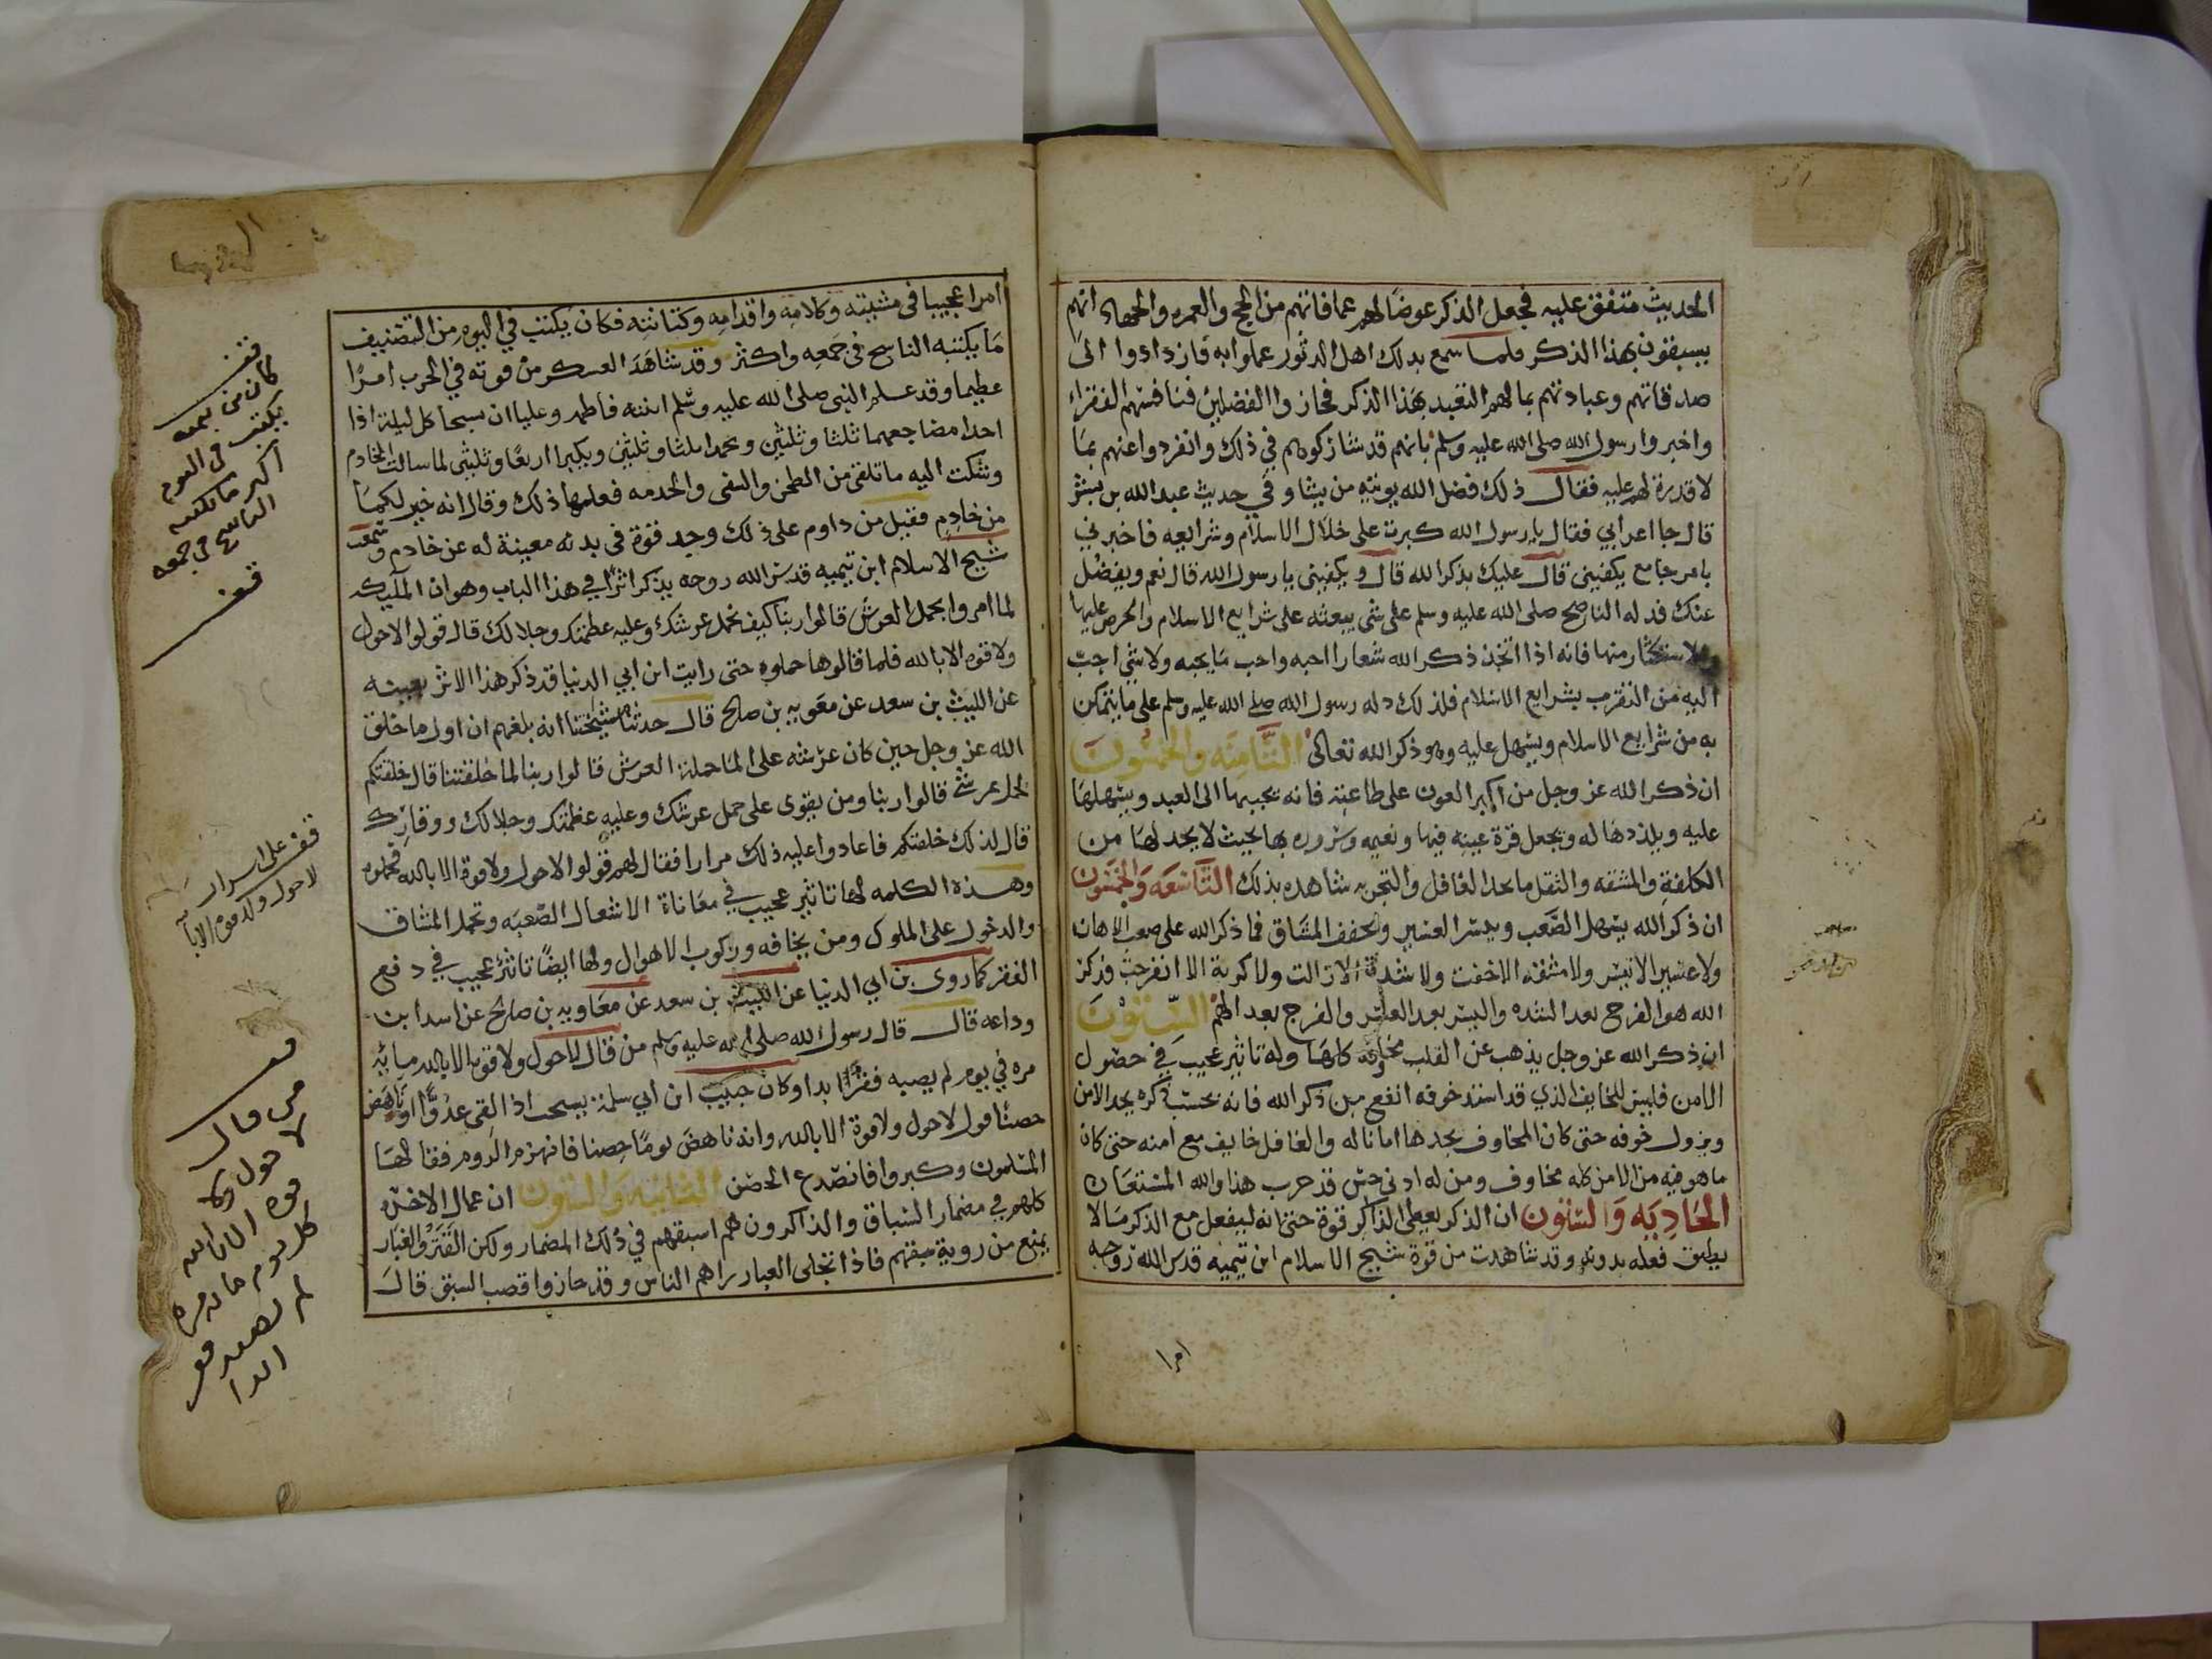 الحديث متفق عليه فجعل الذكر عوضا لهم عما فاتهم من الحج والعمره والجهاد انهم
يسبقون بهذا الذكر فلما سمع بدلك اهل الدثور عملوا به فازدادوا الى
صدقاتهم وعبادتهم بمالهم التعبد بهذا الذكر فحازوا الفضلين فنافستهم الفقراء
واخبروا رسول الله صلى الله عليه وسلم بانهم قد شاركوهم في ذلك وانفردوا عنهم بما
لا قدرة لهم عليه فقال ذلك فضل الله يوتيه من يشا وفي حديث عبد الله بن بشر
قال جا اعرابي فقال يا رسول الله كبرت على خلال الاسلام وشرايعه فاخبرني
بامر جامع يكفيني قال عليك بذكر الله قال ويكفيني يا رسول الله قال نعم ويفضل
عنك فدله الناصح صلى الله عليه وسلم على شي يبعثه على شرايع الاسلام والحرص عليها
والاستكثار منها فانه اذا اتخذ ذكر الله شعارا احبه واحب ما يحبه ولا شي احب
اليه من التقرب بشرايع الاسلام فلذلك دله رسول الله صلى الله عليه وسلم على ما يتمكن
به من شرايع الاسلام ويسهل عليه وهو ذكر الله تعالى الثَّامِنَه والخمسُونَ
ان ذكر الله عز وجل من اكبر العون على طاعته فانه يحببها الى العبد ويسهلها
عليه ويلذذها له ويجعل قرة عينه فيها ونعيمه وسروره بها بحيث لا يجد لها من
الكلفة والمشقه والثقل ما يجد الغافل والتجربه شاهده بذلك التَّاسعَه وَالخمسُون
ان ذكر الله يسهل الصَّعب ويسّر العسير ويخفف المشاق فما ذكر الله على صعب الا هان
ولا عسير الا تيسر ولا مشقه الا خفت ولا شدة الا زالت ولا كربة الا انفرجت فذكر
الله هو الفرج بعد الشده واليسر بعد العسر والفرج بعد الهم السِّتوْنَ
ان ذكر الله عز وجل يذهب عن القلب مخاوفه كلها وله تاثير عجيب في حصول
الامن فليس للخايف الذي قد اشتد خوفه انفع من ذكر الله فانه بحسب ذكره يجد الامن
ويزول خوفه حتى كان المخاوف يجدها امانا له والغافل خايف مع امنه حتى كان
ما هو فيه من الامن كله مخاوف ومن له ادنى حس قد جرب هذا والله المستعان
الحَادِيَه وَالسّتُون ان الذكر يعطى الذاكر قوة حتى انه ليفعل مع الذكر ما لا
يطيق فعله بدونه وقد شاهدت من قوة شيخ الاسلام ابن تيميه قدس الله روحه
امرا
امرا عجيبا فى مشيته وكلامه واقدامه وكتابته فكان يكتب في اليوم من التصنيف
ما يكتبه الناسخ فى جمعه واكثر وقد شاهَدَ العسكر من قوته في الحرب امرًا
عظيما وقد علم النبى صلى الله عليه وسلم ابنته فاطمه وعليا ان يسبحا كل ليلة اذا
اخذا مضاجعهما ثلثا وثلثين ويحمدا ثلثا وثلثين ويكبرا اربعًا وثلثين لما سالت الخادم
وشكت اليه ما تلقى من الطحن والسقى والخدمه فعلمها ذلك وقال انه خير لكما
من خادم فقيل من داوم على ذلك وجد قوة فى بدنه معينة له عن خادم وسمعت
شيخ الاسلام ابن تيميه قدس الله روحه يذكر اثرا في هذا الباب وهو ان الملايكه
لما امروا بحمل العرش قالوا ربنا كيف نحمل عرشك وعليه عظمتك وجلالك قال قولوا لا حول
ولا قوه الا بالله فلما قالوها حملوه حتى رايت ابن ابي الدنيا قد ذكر هذا الاثر بعينه
عن الليث بن سعد عن معويه بن صالح قال حدثنا مشيختنا انه بلغهم ان اول ما خلق
الله عز وجل حين كان عرشه على الما حملة العرش قالوا ربنا لما خلقتنا قال خلقتكم
لحمل عرشي قالوا ربنا ومن يقوى على حمل عرشك وعليه عظمتك وجلالك ووقارك
قال لذلك خلقتكم فاعادوا عليه ذلك مرارا فقال لهم قولوا لا حول ولا قوة الا بالله فحملوه
وهذه الكلمه لها تاثير عجيب في معاناة الاشغال الصّعبَه وتحمل المشاق
والدخول على الملوك ومن يخافه وركوب الاهوال ولها ايضًا تاثير عجيب في دفع
الفقر كما روى بن ابي الدنيا عن الليث بن سعد عن معاويه بن صالح عن اسد ابن
وداعه قال قال رسول الله صلى الله عليه وسلم من قال لا حول ولا قوة الا بالله مايه
مره في يوم لم يصبه فقرًا ابدا وكان حبيب ابن ابي سلمة يستحب اذا القى عدوًا او ناهض
حصنًا قول لا حول ولا قوة الا بالله وانه ناهض يومًا حصنا فانهزم الروم فقالها
المسلمون وكبروا فانصدع الحصن الثانيه والستون ان عمال الاخره
كلهم في مضمار السباق والذاكرون هم اسبقهم في ذلك المضمار ولكن القترة والغبار
يمنع من روية سبقهم فاذا انجلى الغبار راهم الناس وقد حازوا قصب السبق قال
قف
كان من يمه
يكتب في اليوم
اكبر ما يكتبه
الناسخ في جمعه
قف
قف على اسرار
لا حول ولا قوة الا با
قف
من قال
لا حول ولا
قوه الا بالله
كل يوم مايه مره
لم يصبه فقر
ابدا